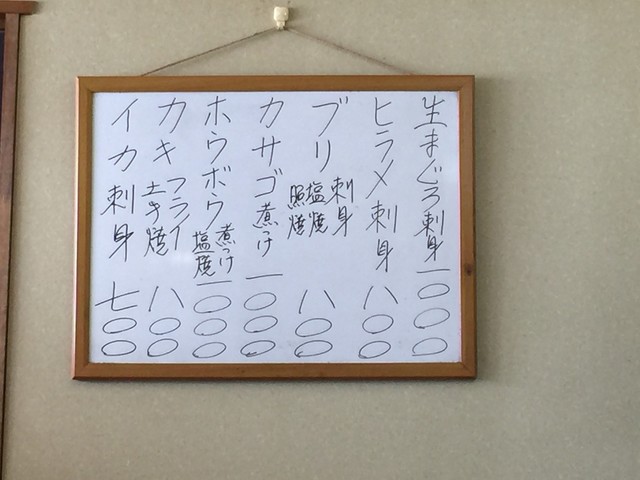 生まぐろ刺身一〇〇〇
ヒラメ刺身八〇〇
ブリ刺身塩焼照焼八〇〇
カサゴ煮つけ一〇〇〇
ホウボウ煮つけ塩焼一〇〇〇
カキフライ土手焼八〇〇
イカ刺身七〇〇